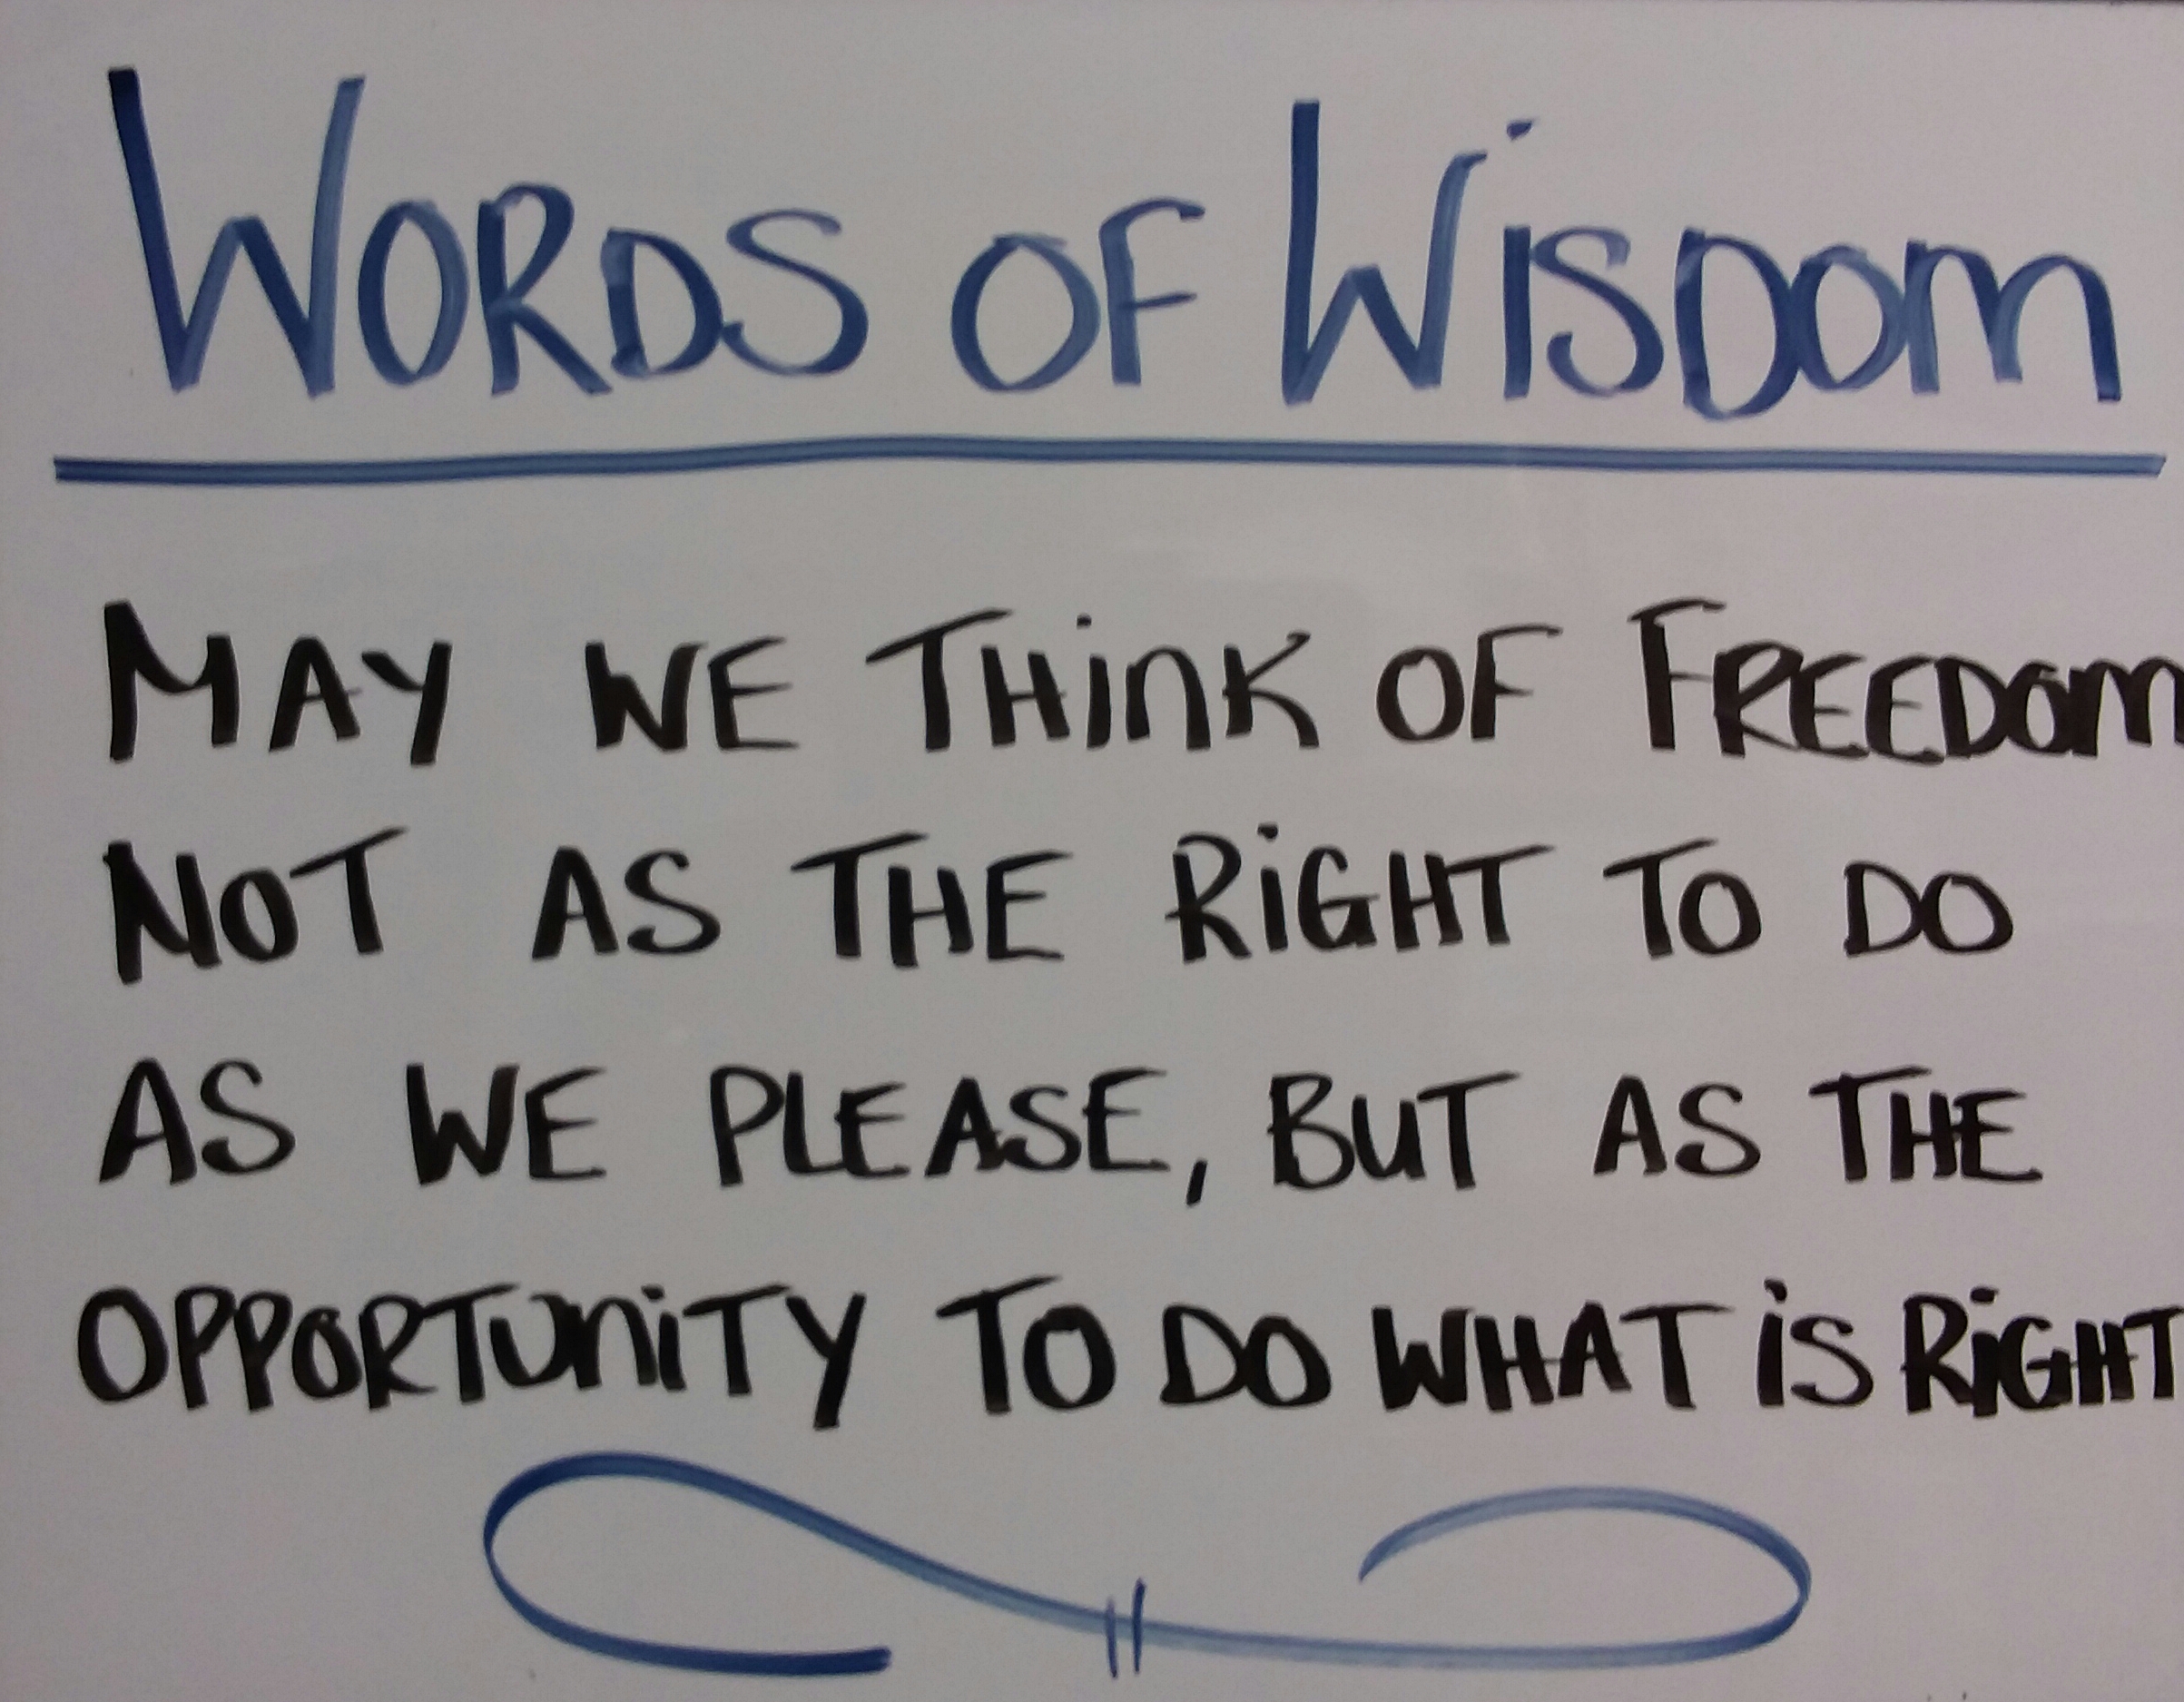 WORDS OF WISDOM
MAY WE THINK OF FREEDOM
NOT AS THE RIGHT TO DO
AS WE PLEASE, BUT AS THE
OPPORTUNITY TO DO WHAT IS RIGHT